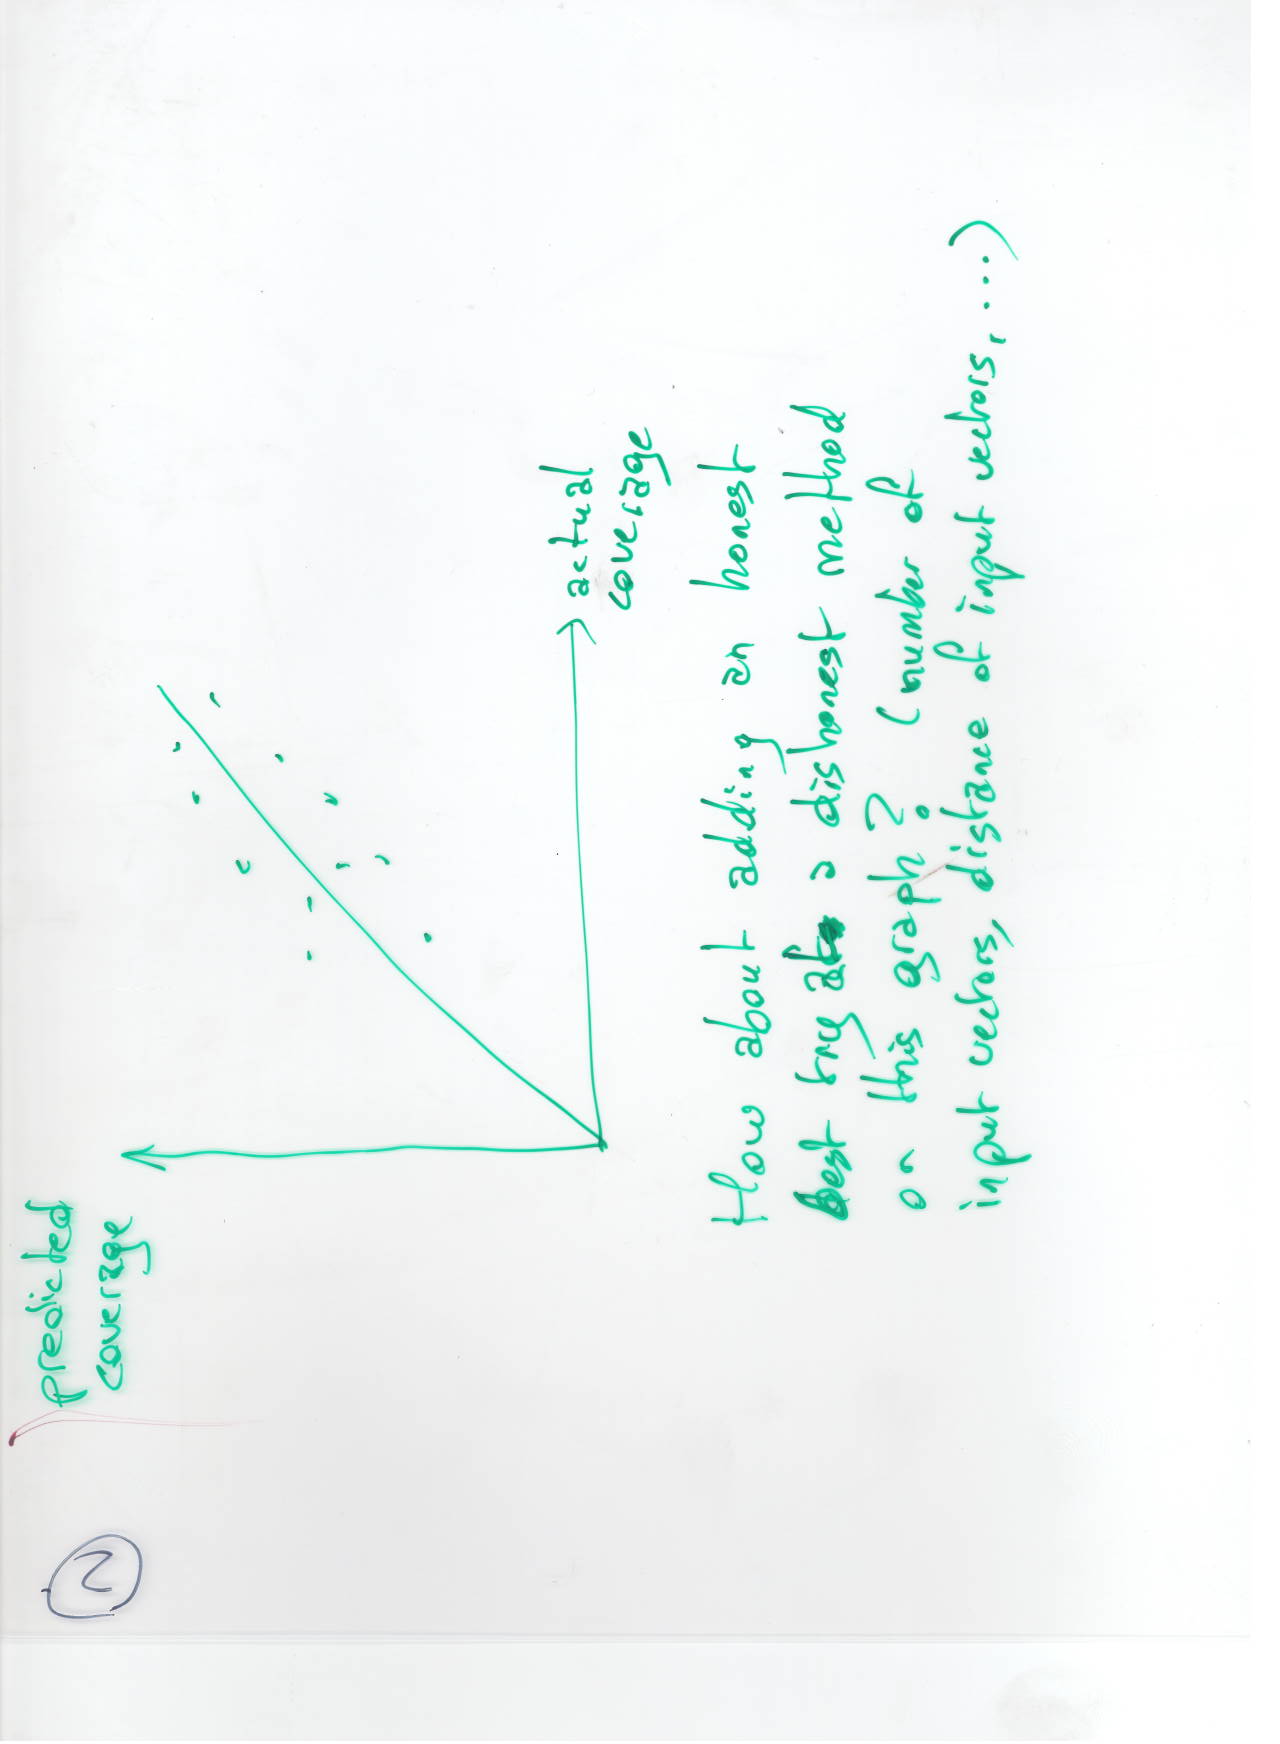 2
predicted
coverage
actual
coverage
How about adding an honest
best try a dishonest method
on this graph? (number of
input vectors, distance of input vectors, ....)